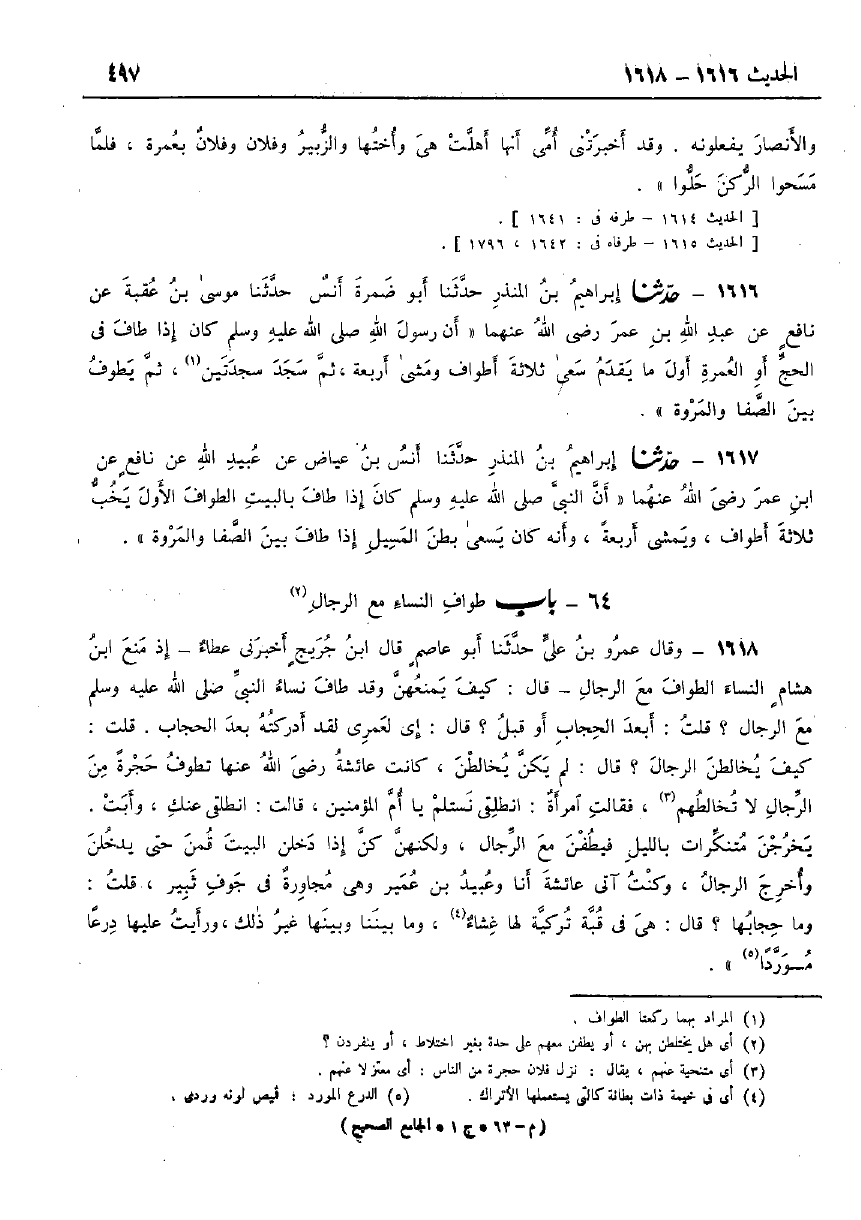 الحديث ١٦١٦ – ١٦١٨ ٤٩٧
والأَنصارَ يفعلونه . وقد أَخبرَتْنى أُمِّى أَنها أَهلَّتْ هىَ وأُختُها والزُّبيرُ وفلان وفلانٌ بعُمرة ، فلمَّا
مَسَحوا الرُّكنَ حَلُّوا » .
[ الحديث ١٦١٤ – طرفه فى : ١٦٤١ ] .
[ الحديث ١٦١٥ – طرفاه فى : ١٦٤٢ ، ١٧٩٦ ] .
١٦١٦ – حدّثنا إبراهيمُ بنُ المنذرِ حدَّثَنا أَبو ضَمرةَ أَنسٌ حدَّثَنا موسىٰ بنُ عُقبةَ عن
نافعٍ عن عبدِ اللهِ بنِ عمرَ رضى اللهُ عنهما « أَن رسولَ اللهِ صلى الله عليهِ وسلم كان إِذا طافَ فى
الحجِّ أَوِ العُمرةِ أَولَ ما يَقدَمُ سَعىٰ ثلاثةَ أَطواف ومَشىٰ أَربعة ، ثمَّ سَجَدَ سجدَتَين(١) ، ثمَّ يَطوفُ
بينَ الصَّفا والمَرْوة » .
١٦١٧ – حدّثنا إبراهيمُ بنُ المنذرِ حدَّثَنا أَنسُ بنُ عياض عن عُبيدِ اللهِ عن نافعٍ عن
ابنِ عمرَ رضىَ اللهُ عنهُما « أَنَّ النبىَّ صلى الله عليهِ وسلم كانَ إِذا طافَ بالبيتِ الطوافَ الأَولَ يَخُبُّ
ثلاثةَ أَطواف ، ويَمشى أَربعةً ، وأَنه كان يَسعىٰ بطنَ المَسِيلِ إِذا طافَ بينَ الصَّفا والمَرْوة » .
٦٤ – باب طوافِ النساءِ مع الرجالِ(٢)
١٦١٨ – وقال عمرُو بنُ علىٍّ حدَّثَنا أَبو عاصمٍ قال ابنُ جُرَيجٍ أَخبرَنى عطاءٌ – إِذ مَنَعَ ابنُ
هشامٍ النساءَ الطوافَ معَ الرجالِ – قال : كيفَ يَمنعُهنَّ وقد طافَ نساءُ النبىِّ صلى الله عليه وسلم
معَ الرجال ؟ قلتُ : أَبعدَ الحِجابِ أَو قبلُ ؟ قال : إِى لعَمرِى لقد أَدركتُهُ بعدَ الحجاب . قلت :
كيفَ يُخالطنَ الرجالَ ؟ قال : لم يَكنَّ يُخالطْنَ ، كانت عائشةُ رضىَ اللهُ عنها تطوفُ حَجْرةً مِنَ
الرِّجالِ لا تُخالطُهم(٣) ، فقالتِ آمرأَةٌ : انطلِقى نَستلمْ يا أُمَّ المؤمنين ، قالت : انطلقى عنكِ ، وأَبَتْ .
يَخرُجْنَ مُتنكِّرات بالليلِ فيطُفْنَ معَ الرِّجال ، ولكنهنَّ كنَّ إِذا دَخلن البيتَ قُمنَ حتى يدخُلنَ
وأُخرِجَ الرجالُ ، وكنْتُ آتى عائشةَ أَنا وعُبيدُ بن عُمَير وهى مُجاوِرةٌ فى جَوفِ ثَبِير ، قلتُ :
وما حِجابُها ؟ قال : هىَ فى قُبَّة تُركيَّة لها غِشاءٌ(٤) ، وما بينَنا وبينَها غيرُ ذٰلك ، ورأَيتُ عليها دِرعًا
مُورَّدًا(٥) » .
(١) المراد بهما ركعتا الطواف .
(٢) أى هل يختلطن بهن ، أو يطفن معهم على حدة بغير اختلاط ، أو ينفردن ؟
(٣) أى متنحية عنهم ، يقال : نزل فلان حجرة من الناس : أى معتزلا عنهم .
(٤) أى فى خيمة ذات بطانة كالتى يستعملها الأتراك . (٥) الدرع المورد : قميص لونه وردى .
(م – ٦٣ • ج ١ • الجامع الصحيح)